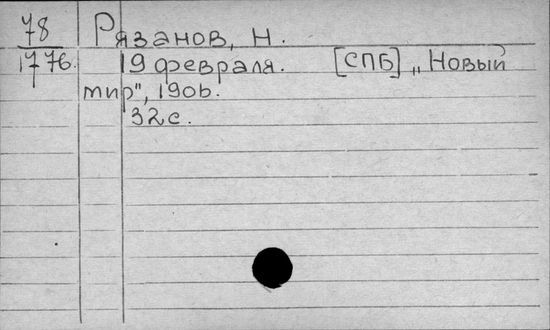 78 Рязанов, Н.
1776. 19 февраля. [СПБ] „Новый
мир", 1906.
32с.